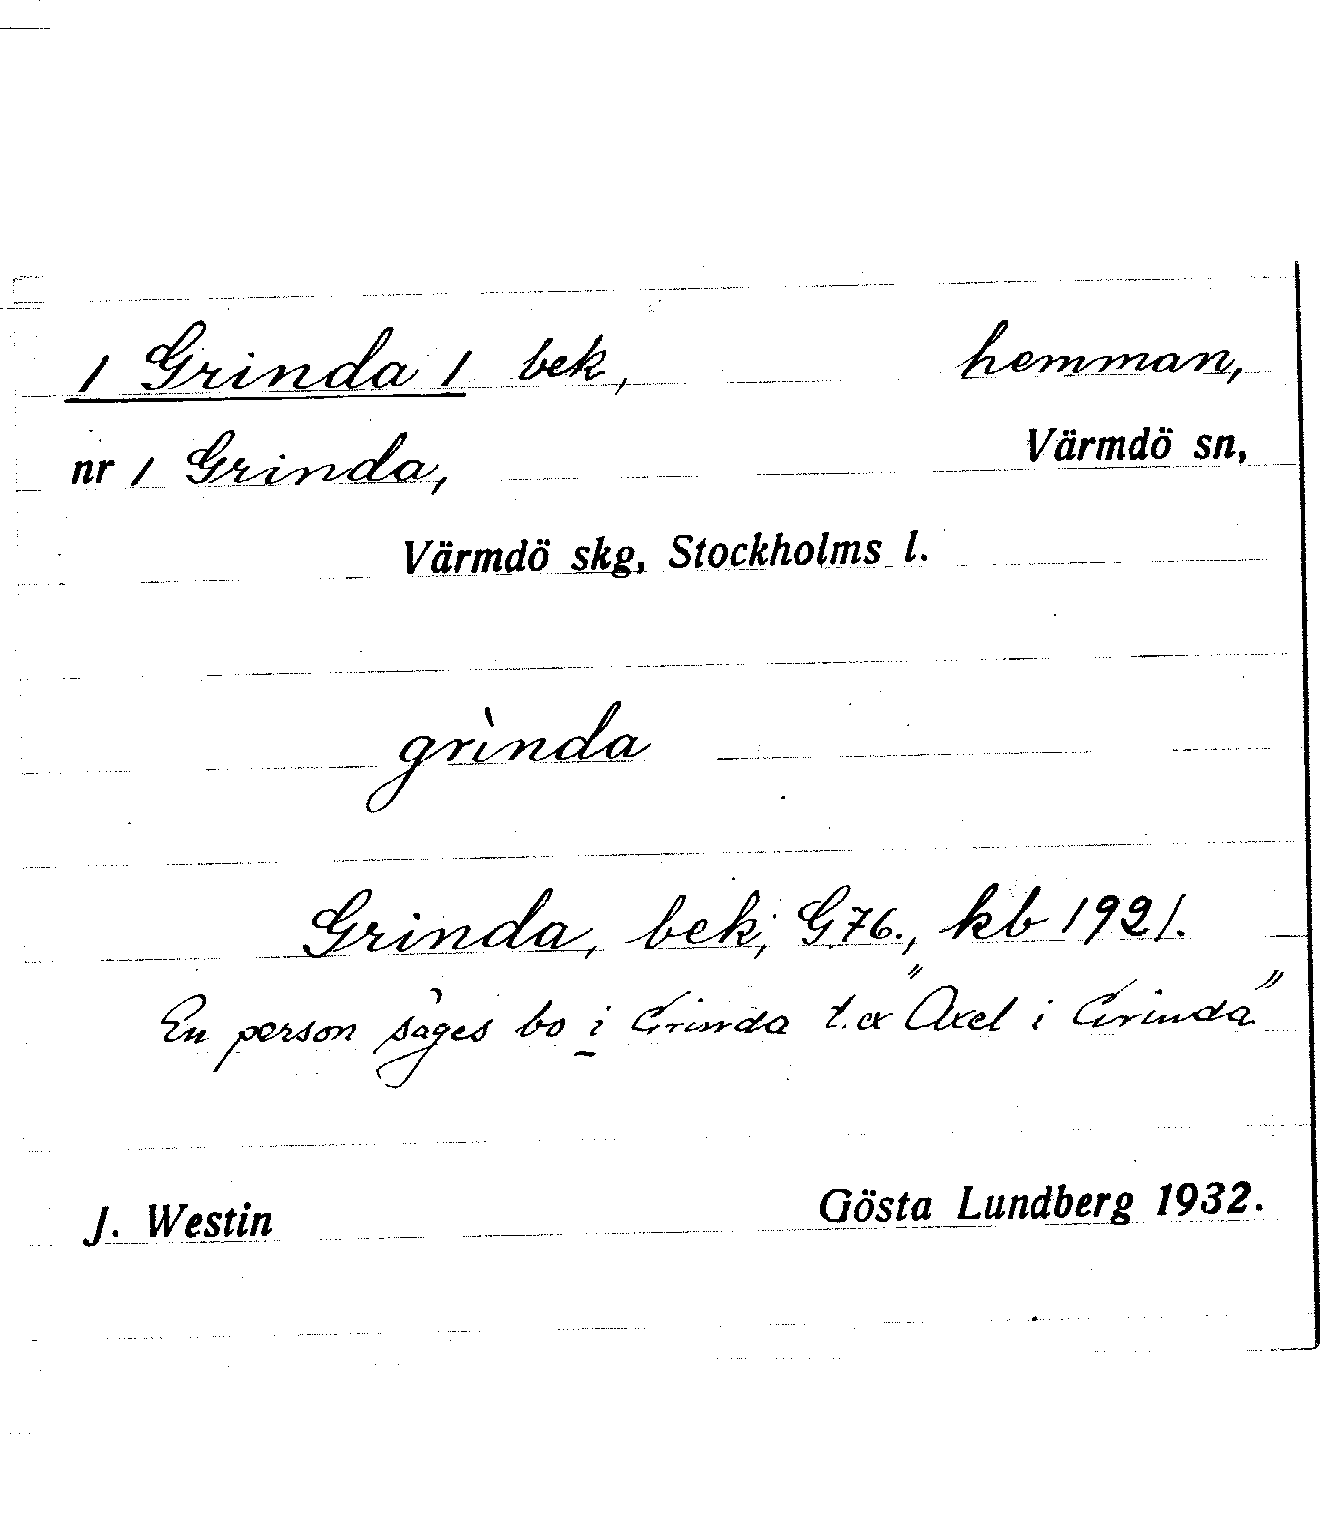 1 Grinda 1 bek, hemman,
nr 1 Grinda, Värmdö sn,
Värmdö skg, Stockholms l.
grìnda
Grinda, bek; G76., kb 1921.
En person säges bo i Grinda t. ex "Axel i Grinda"
J. Westin Gösta Lundberg 1932.